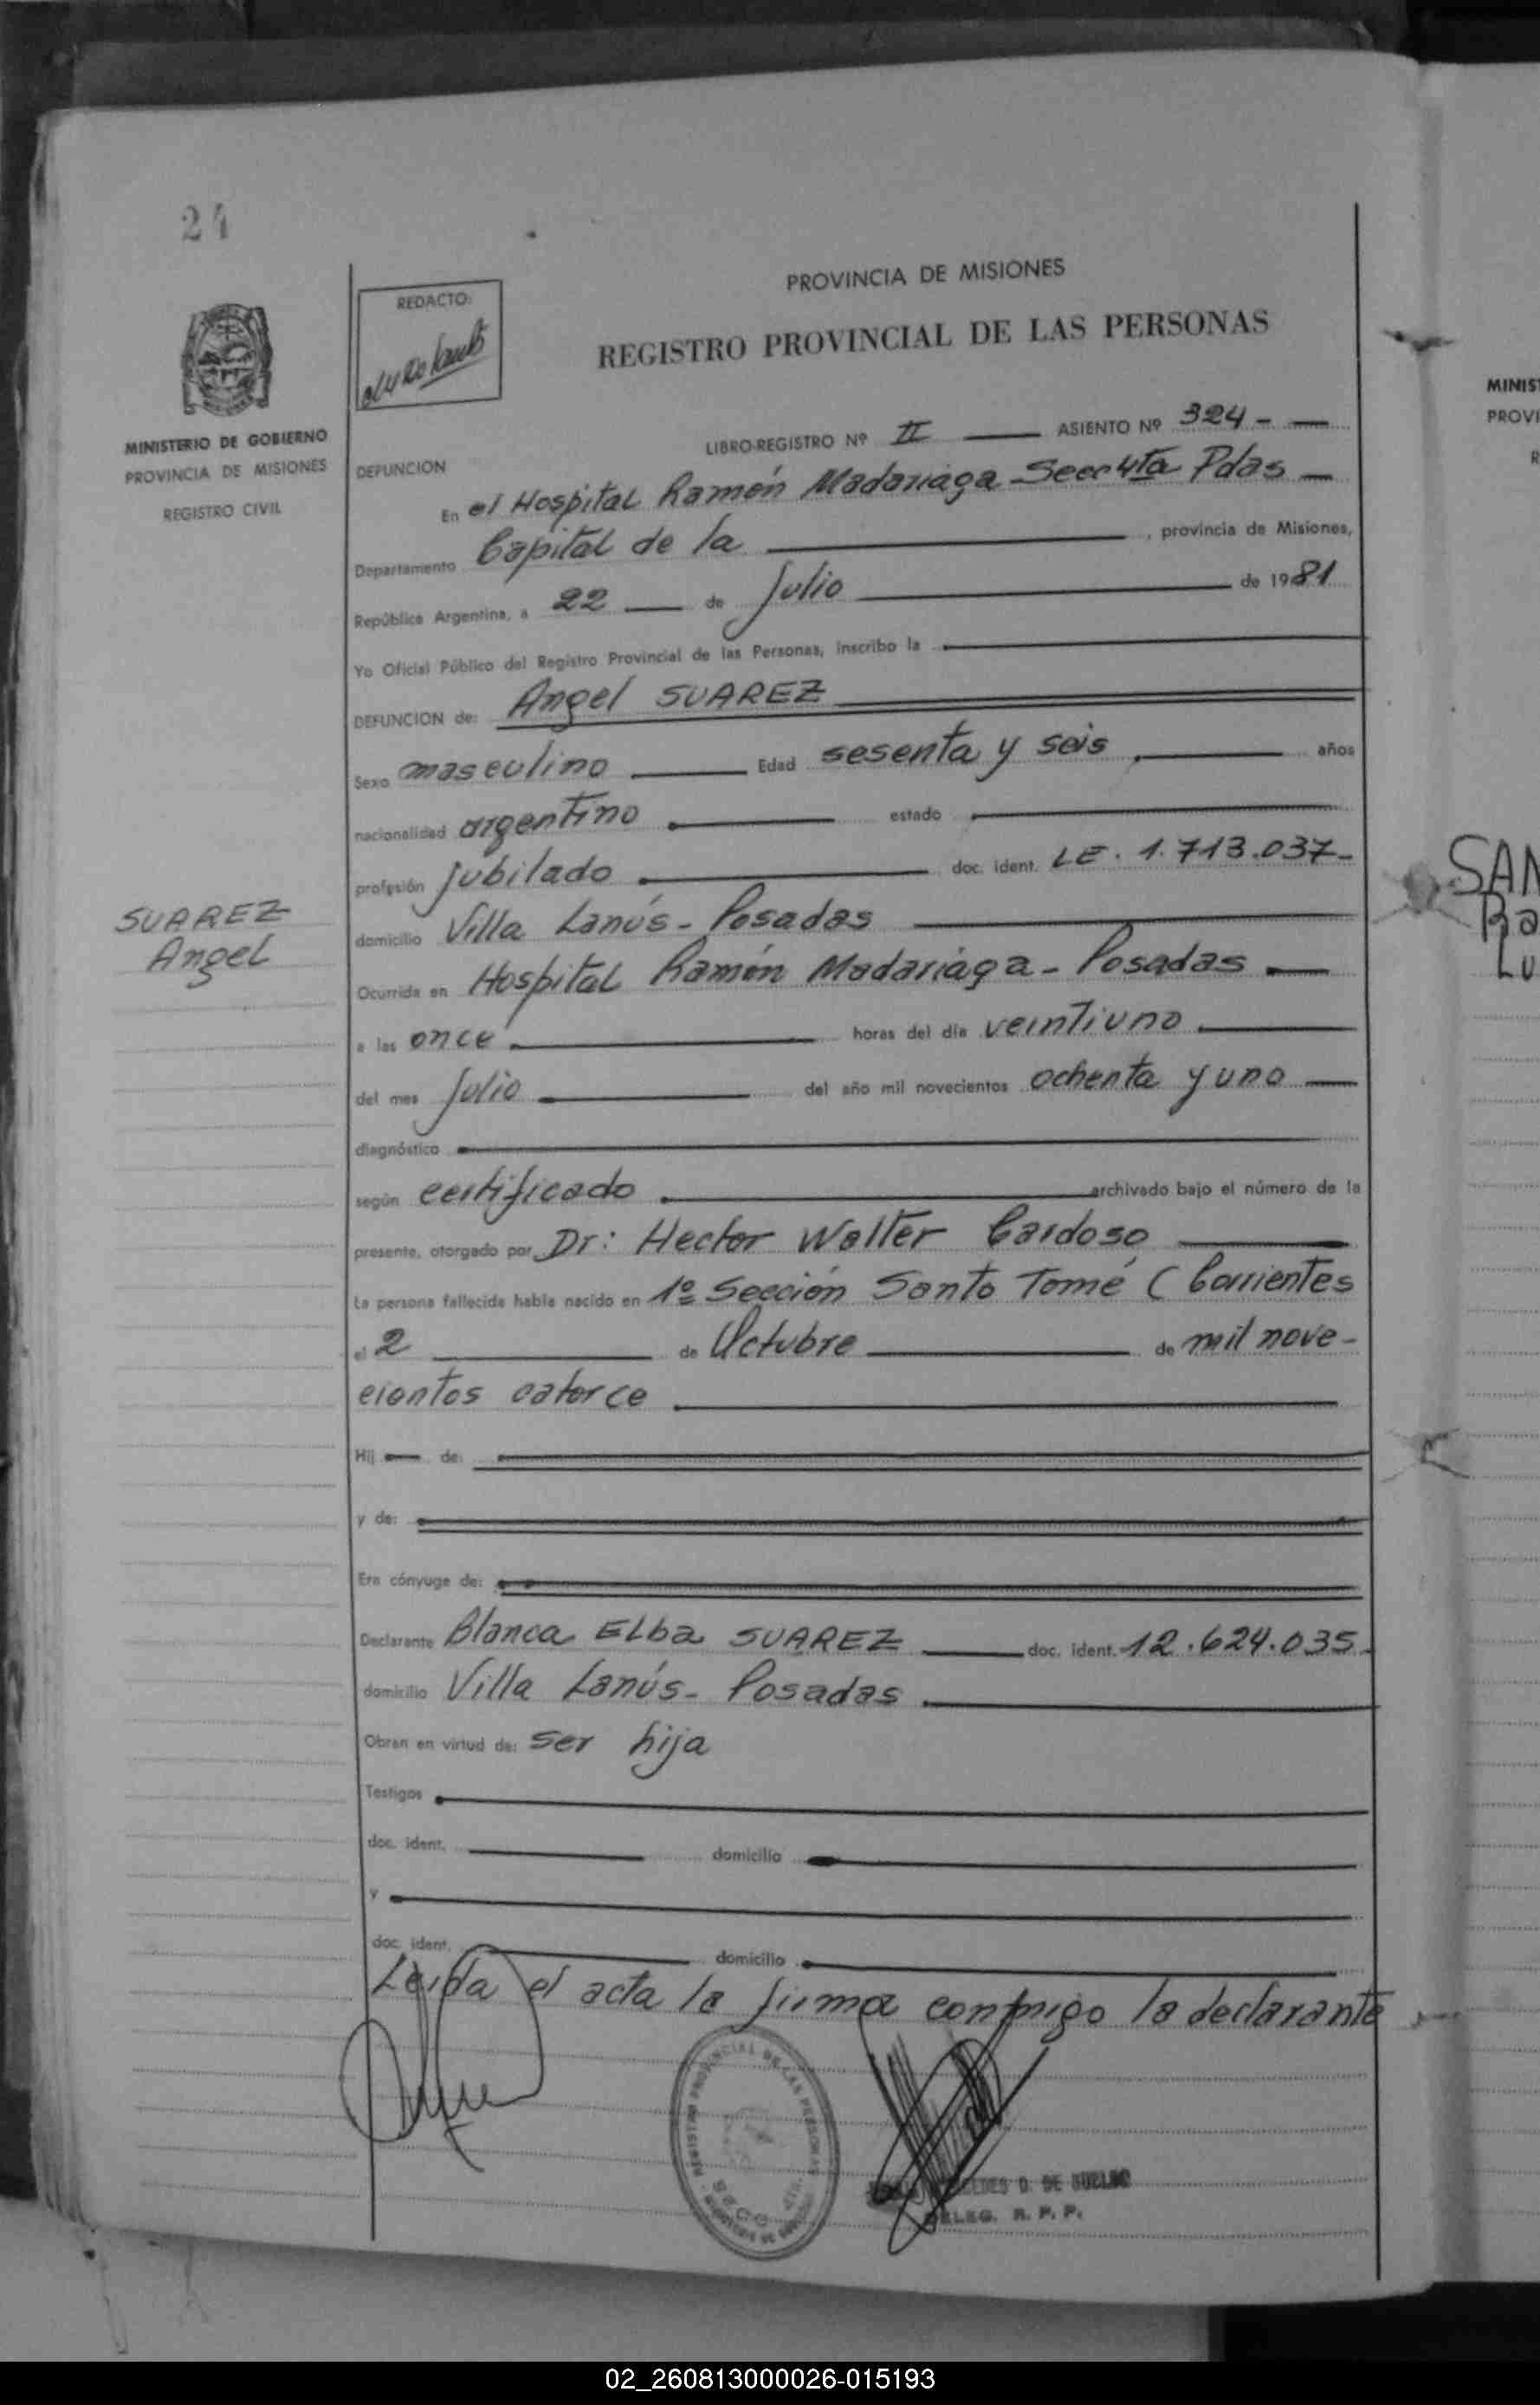 24
PROVINCIA DE MISIONES
REDACTO:
REGISTRO PROVINCIAL DE LAS PERSONAS
MINISTERIO DE GOBIERNO
PROVINCIA DE MISIONES
REGISTRO CIVIL
LIBRO-REGISTRO Nº II ASIENTO Nº 324 -
DEFUNCION
En el Hospital Ramón Madariaga - Secc 4ta Pdas
Departamento Capital de la , provincia de Misiones,
República Argentina, a 22 de Julio de 1981
Yo Oficial Público del Registro Provincial de las Personas, inscribo la
DEFUNCION de: Angel SUAREZ
Sexo masculino Edad sesenta y seis años
nacionalidad argentino estado
profesión jubilado doc. ident. LE. 1.713.037-
SUAREZ
Angel
domicilio Villa Lanús - Posadas
Ocurrida en Hospital Ramón Madariaga - Posadas
a las once horas del día veintiuno
del mes Julio del año mil novecientos ochenta y uno
diagnóstico
según certificado archivado bajo el número de la
presente, otorgado por Dr: Hector Walter Cardoso
La persona fallecida había nacido en 1º Sección Santo Tomé (Corrientes
el 2 de Octubre de mil nove-
cientos catorce
Hij de:
y de:
Era cónyuge de:
Declarante Blanca ELba SUAREZ doc. ident. 12.624.035.
domicilio Villa Lanús - Posadas
Obran en virtud de: ser hija
Testigos
doc. ident. domicilio
y
doc. ident. domicilio
Leída el acta la firma conmigo la declarante
REGISTRO PROVINCIAL DE LAS PERSONAS
DE
DELEG. R. P. P.
MINIS
PROVI
R
SAN
Ra
Lu
02_260813000026-015193